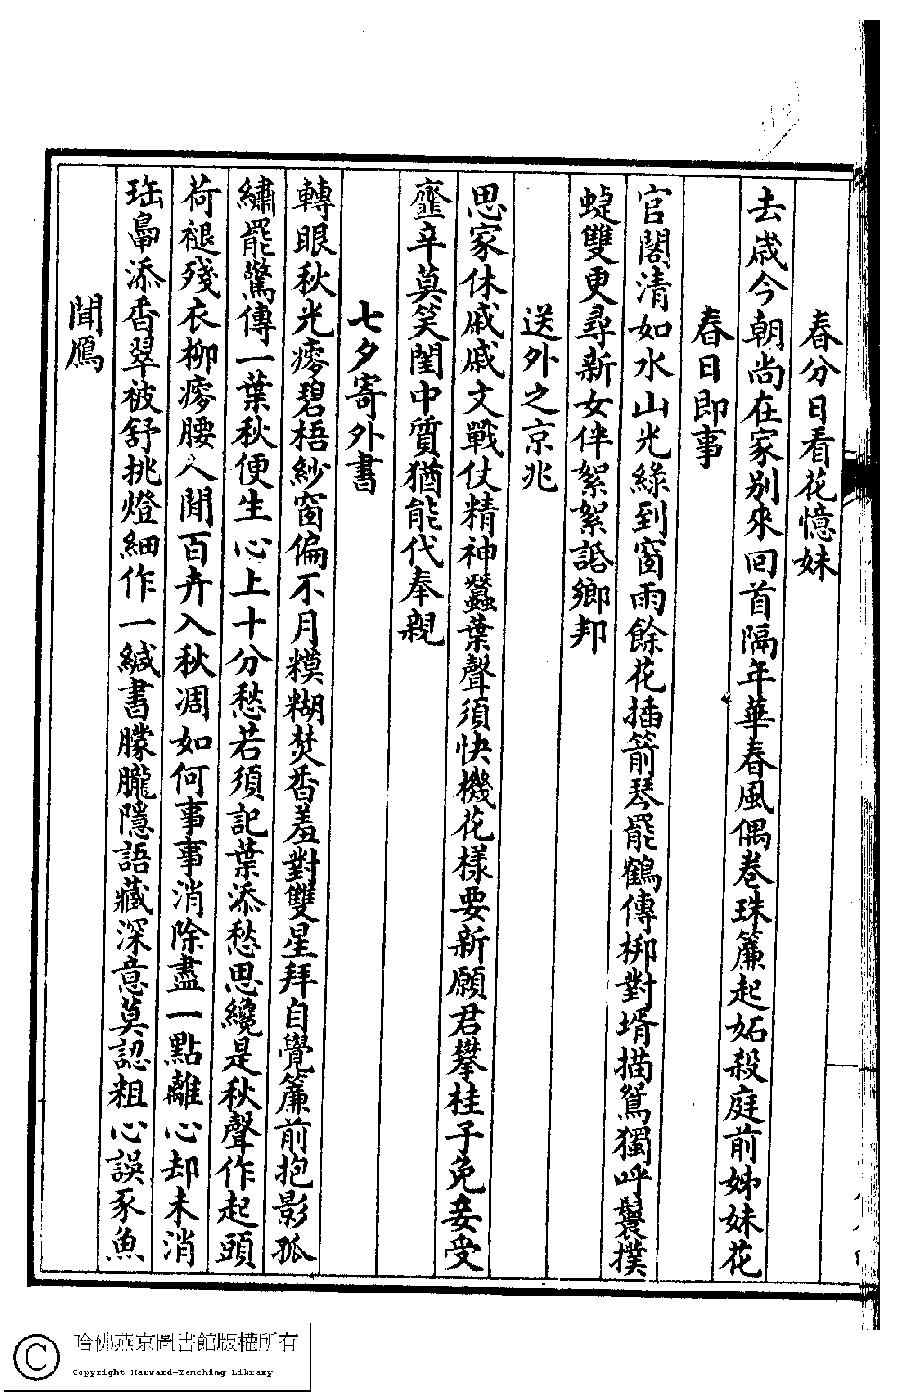 春分日看花憶妹
去歲今朝尚在家別來回首隔年華春風偶卷珠簾起妬殺庭前姊妹花
春日即事
官閣清如水山光綠到窗雨餘花插箭琴罷鶴傳梆對壻描鴛獨呼鬟撲
蜨雙更尋新女伴絮絮話鄉邦
送外之京兆
思家休戚戚文戰仗精神蠶葉聲須快機花樣要新願君攀桂子免妾受
虀辛莫笑閨中質猶能代奉親
七夕寄外書
轉眼秋光瘆碧梧紗窗偏不月糢糊焚香羞對雙星拜自覺簾前抱影孤
繡罷驚傳一葉秋便生心上十分愁若須記葉添愁思纔是秋聲作起頭
荷褪殘衣柳瘆腰人聞百卉入秋凋如何事事消除盡一點離心却未消
珤鼎添香翠被舒挑燈細作一緘書朦朧隱語藏深意莫認粗心誤豕魚
聞鴈
哈佛燕京圖書館版權所有
Copyright Harvard-Yenching Library